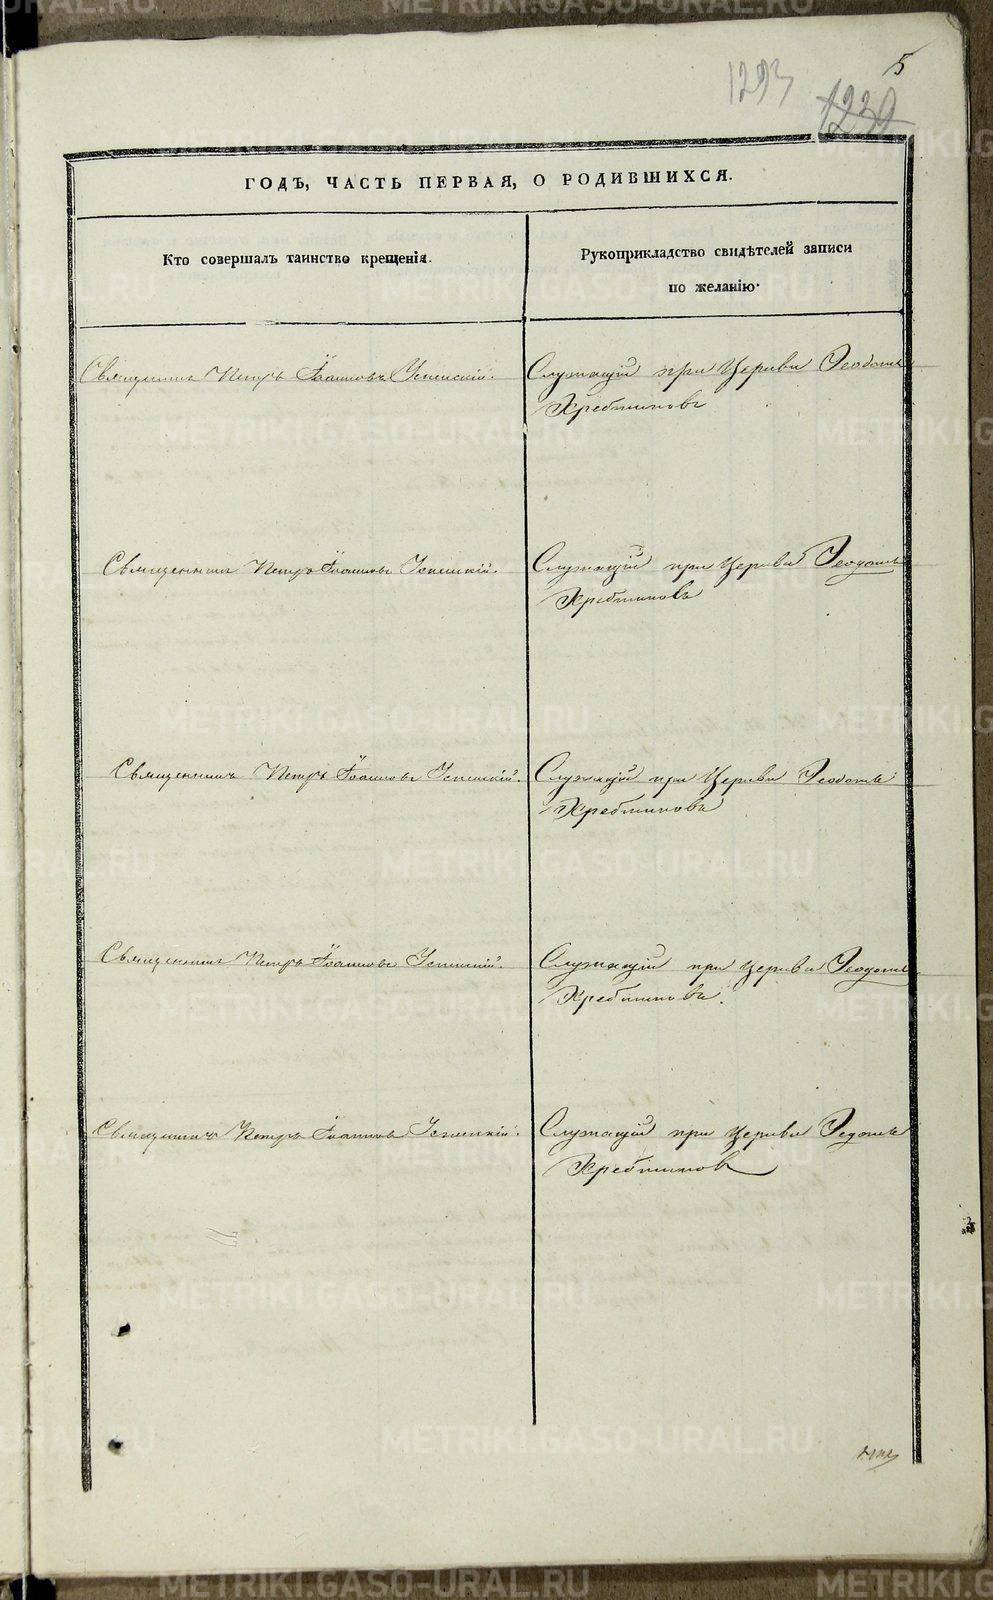 5
1293
1232
ГОДЪ, ЧАСТЬ ПЕРВАЯ, О РОДИВШИХСЯ.
Кто совершалъ таинство крещенія.
Рукоприкладство свидѣтелей записи
по желанію.
Священникъ Петръ Іоанновъ Успенскій.
Служащій при Церкви Ѳеодотъ
Хребтиковъ
Священникъ Петръ Іоанновъ Успенскій.
Служащій при Церкви Ѳеодотъ
Хребтиковъ
Священникъ Петръ Іоанновъ Успенскій.
Служащій при Церкви Ѳеодотъ
Хребтиковъ
Священникъ Петръ Іоанновъ Успенскій.
Служащій при Церкви Ѳеодотъ
Хребтиковъ.
Священникъ Петръ Іоанновъ Успенскій.
Служащій при Церкви Ѳедотъ
Хребтиковъ
METRIKI.GASO-URAL.RU